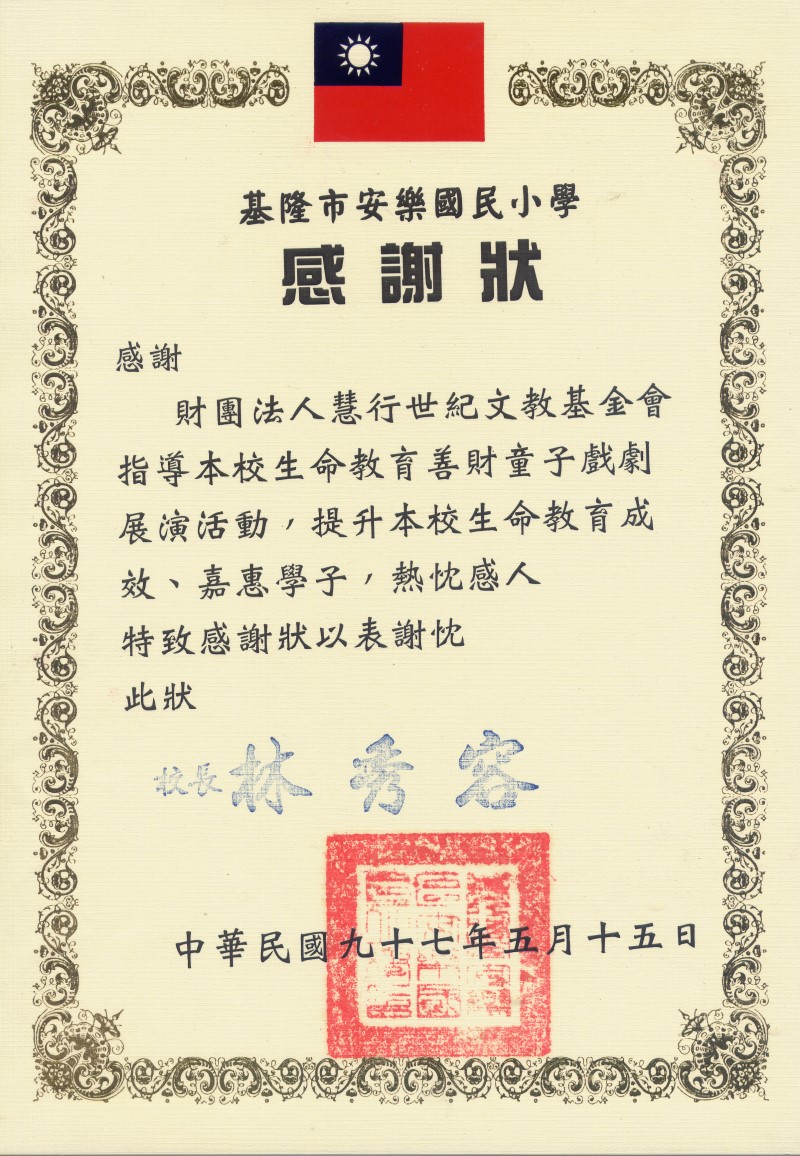 基隆市安樂國民小學
感謝狀
感謝
財團法人慧行世紀文教基金會
指導本校生命教育善財童子戲劇
展演活動，提升本校生命教育成
效、嘉惠學子，熱忱感人
特致感謝狀以表謝忱
此狀
校長 林秀容
中華民國九十七年五月十五日